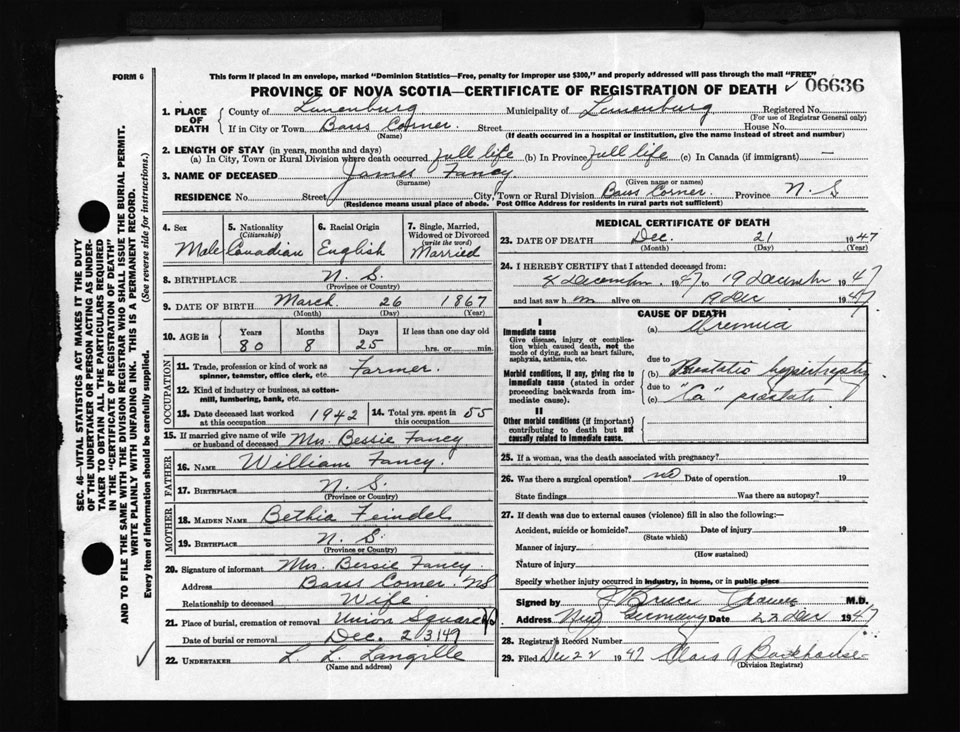 FORM 6
This form if placed in an envelope, marked "Dominion Statistics—Free, penalty for improper use $300," and properly addressed will pass through the mail "FREE"
PROVINCE OF NOVA SCOTIA—CERTIFICATE OF REGISTRATION OF DEATH ✓ 06636
1. PLACE OF DEATH County of Lunenburg Municipality of Lunenburg Registered No.
(For use of Registrar General only)
If in City or Town Barss Corner. Street House No.
(Name) (If death occurred in a hospital or institution, give the name instead of street and number)
2. LENGTH OF STAY (in years, months and days)
(a) In City, Town or Rural Division where death occurred full life (b) In Province full life (c) In Canada (if immigrant) —
3. NAME OF DECEASED James Fancy
(Surname) (Given name or names)
RESIDENCE No. Street City, Town or Rural Division Barss Corner. Province N. S
(Residence means usual place of abode. Post Office Address for residents in rural parts not sufficient)
4. Sex Male
5. Nationality (Citizenship) Canadian
6. Racial Origin English
7. Single, Married, Widowed or Divorced (write the word) Married
8. BIRTHPLACE N. S.
(Province or Country)
9. DATE OF BIRTH March 26 1867
(Month) (Day) (Year)
10. AGE in Years Months Days If less than one day old
80 8 25 hrs. or min.
OCCUPATION
11. Trade, profession or kind of work as spinner, teamster, office clerk, etc. Farmer.
12. Kind of industry or business, as cotton-mill, lumbering, bank, etc.
13. Date deceased last worked at this occupation 1942 14. Total yrs. spent in this occupation 55
15. If married give name of wife or husband of deceased Mrs. Bessie Fancy
FATHER
16. NAME William Fancy.
17. BIRTHPLACE N. S.
(Province or Country)
MOTHER
18. MAIDEN NAME Bethia Feindel
19. BIRTHPLACE N. S
(Province or Country)
20. Signature of informant Mrs. Bessie Fancy.
Address Barss Corner. NS
Relationship to deceased Wife
21. Place of burial, cremation or removal Union Square
Date of burial or removal Dec. 23
22. UNDERTAKER L. L. Langille
(Name and address)
MEDICAL CERTIFICATE OF DEATH
23. DATE OF DEATH Dec. 21 1947
(Month) (Day) (Year)
24. I HEREBY CERTIFY that I attended deceased from:
4 December 1947 to 19 December 1947
and last saw h im alive on 19 Dec 1947
CAUSE OF DEATH
I
Immediate cause
Give disease, injury or complication which caused death, not the mode of dying, such as heart failure, asphyxia, asthenia, etc.
(a) Uremia
due to
Morbid conditions, if any, giving rise to immediate cause (stated in order proceeding backwards from immediate cause).
(b) Prostatic hypertrophy
due to
(c) "Ca" prostate
II
Other morbid conditions (if important) contributing to death but not causally related to immediate cause.
25. If a woman, was the death associated with pregnancy?
26. Was there a surgical operation? no Date of operation 19
State findings Was there an autopsy?
27. If death was due to external causes (violence) fill in also the following:—
Accident, suicide or homicide? Date of injury 19
(State which)
Manner of injury
(How sustained)
Nature of injury
Specify whether injury occurred in industry, in home, or in public place
Signed by J Bruce M.D.
Address New Germany Date 22 Dec 1947
28. Registrar's Record Number
29. Filed Dec 22 1947
(Division Registrar)
SEC. 46—VITAL STATISTICS ACT MAKES IT THE DUTY
OF THE UNDERTAKER OR PERSON ACTING AS UNDER-
TAKER TO OBTAIN ALL THE PARTICULARS REQUIRED
IN THE "CERTIFICATE OF REGISTRATION OF DEATH"
AND TO FILE THE SAME WITH THE DIVISION REGISTRAR WHO SHALL ISSUE THE BURIAL PERMIT.
WRITE PLAINLY WITH UNFADING INK. THIS IS A PERMANENT RECORD.
Every item of information should be carefully supplied. (See reverse side for instructions.)